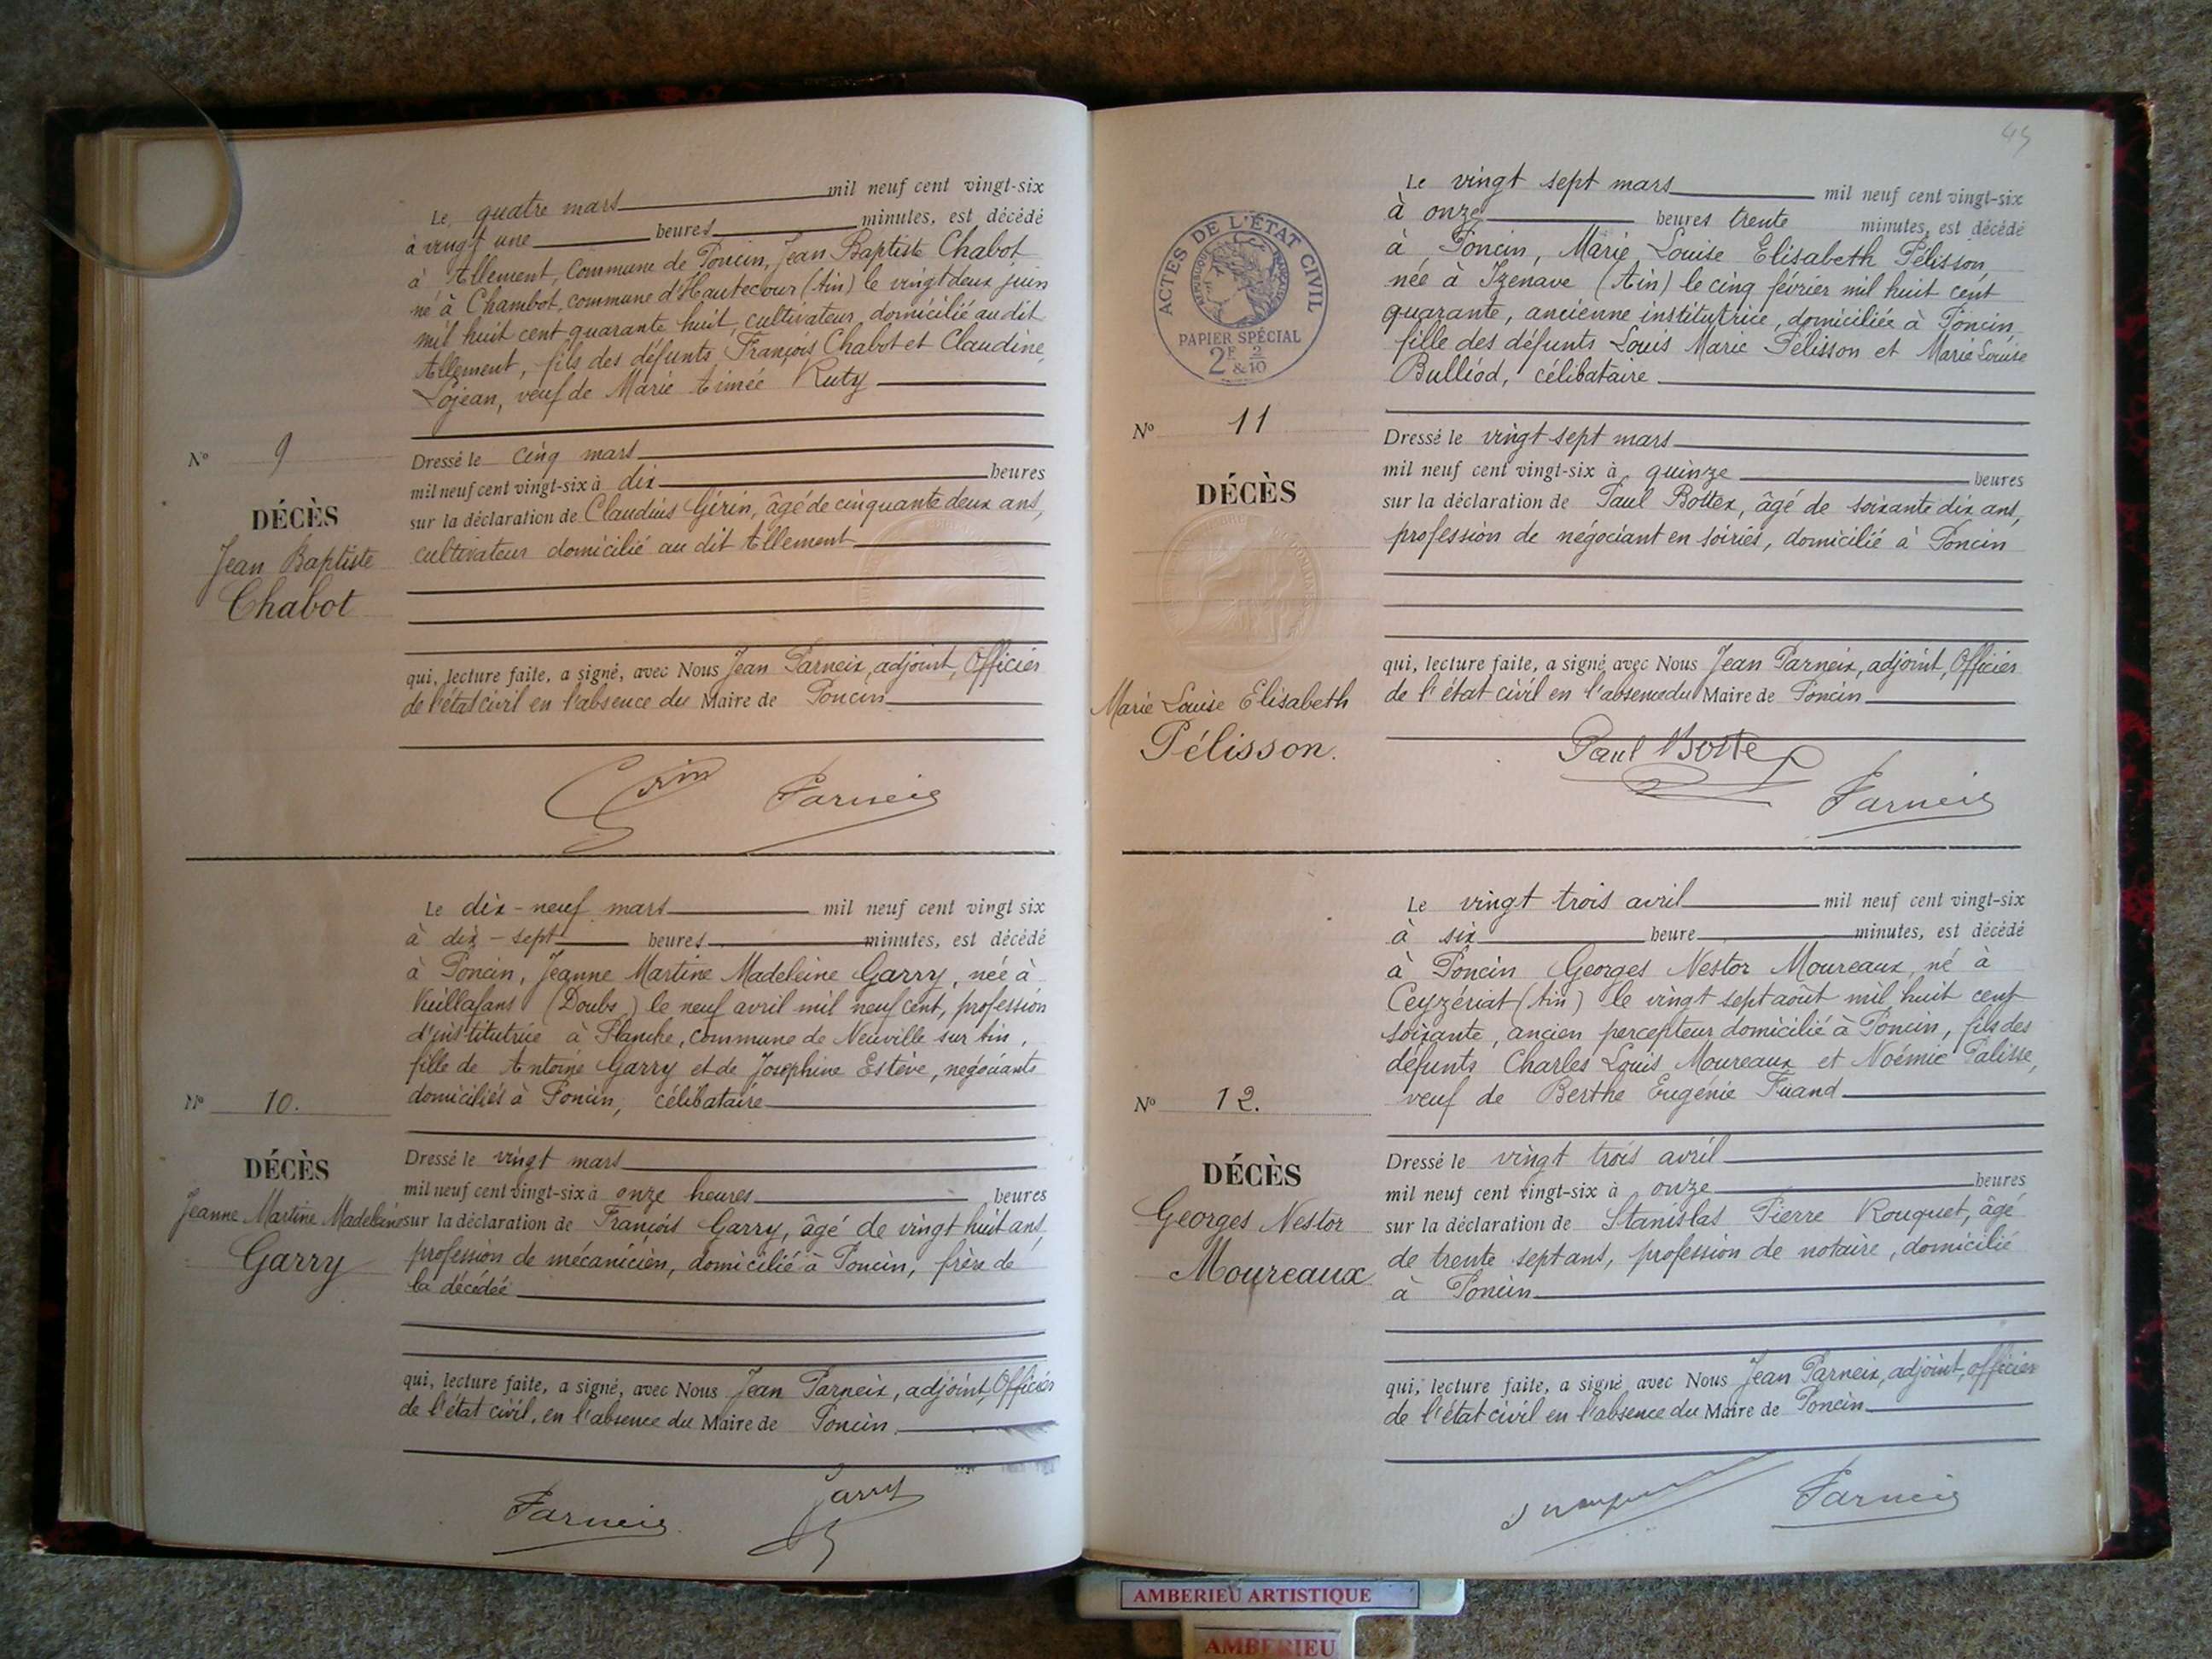 Le quatre mars mil neuf cent vingt-six
à vingt une heures minutes, est décédé
à Allement, Commune de Poncin, Jean Baptiste Chabot
né à Chambot, commune d'Hautecour (Ain) le vingt deux juin
mil huit cent quarante huit, cultivateur, domicilié au dit
Allement, fils des défunts François Chabot et Claudine
Lojean, veuf de Marie Aimée Ruty
Nº 9
DÉCÈS
Jean Baptiste
Chabot
Dressé le cinq mars
mil neuf cent vingt-six à dix heures
sur la déclaration de Claudius Gérin, âgé de cinquante deux ans,
cultivateur domicilié au dit Allement
qui, lecture faite, a signé, avec Nous Jean Parneix, adjoint, Officier
de l'état civil en l'absence du Maire de Poncin
Parneix
Le dix-neuf mars mil neuf cent vingt six
à dix-sept heures minutes, est décédé
à Poncin, Jeanne Martine Madeleine Garry, née à
Vuillafans (Doubs) le neuf avril mil neuf cent, profession
d'institutrice à Planche, commune de Neuville sur Ain,
fille de Antoine Garry et de Josephine Estève, négociants
domiciliés à Poncin, célibataire
Nº 10.
DÉCÈS
Jeanne Martine Madeleine
Garry
Dressé le vingt mars
mil neuf cent vingt-six à onze heures heures
sur la déclaration de François Garry, âgé de vingt huit ans,
profession de mécanicien, domicilié à Poncin, frère de
la décédée
qui, lecture faite, a signé, avec Nous Jean Parneix, adjoint, Officier
de l'état civil, en l'absence du Maire de Poncin.
Parneix Garry
45
ACTES DE L'ÉTAT CIVIL
PAPIER SPÉCIAL
2F &2/10
Le vingt sept mars mil neuf cent vingt-six
à onze heures trente minutes, est décédé
à Poncin, Marie Louise Elisabeth Pélisson,
née à Izenave (Ain) le cinq février mil huit cent
quarante, ancienne institutrice, domiciliée à Poncin,
fille des défunts Louis Marie Pélisson et Marie Louise
Bulliod, célibataire
Nº 11
DÉCÈS
Marie Louise Elisabeth
Pélisson.
Dressé le vingt sept mars
mil neuf cent vingt-six à quinze heures
sur la déclaration de Paul Bottex, âgé de soixante dix ans,
profession de négociant en soiries, domicilié à Poncin
qui, lecture faite, a signé, avec Nous Jean Parneix, adjoint, Officier
de l'état civil en l'absence du Maire de Poncin
Paul Bottex
Parneix
Le vingt trois avril mil neuf cent vingt-six
à six heure minutes, est décédé
à Poncin Georges Nestor Moureaux, né à
Ceyzériat (Ain) le vingt sept août mil huit cent
soixante, ancien percepteur domicilié à Poncin, fils des
défunts Charles Louis Moureaux et Noémie Palisse,
veuf de Berthe Eugénie Tuand
Nº 12.
DÉCÈS
Georges Nestor
Moureaux
Dressé le vingt trois avril
mil neuf cent vingt-six à onze heures
sur la déclaration de Stanislas Pierre Rouquet, âgé
de trente sept ans, profession de notaire, domicilié
à Poncin
qui, lecture faite, a signé avec Nous Jean Parneix, adjoint, officier
de l'état civil en l'absence du Maire de Poncin
Parneix
AMBERIEU ARTISTIQUE
AMBERIEU